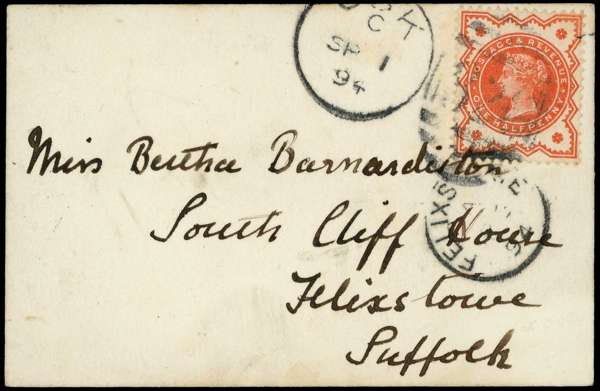 C
SP 1
94
POSTAGE & REVENUE
ONE HALFPENNY
FELIXS
Miss Bertha Barnardiston
South Cliff House
Felixstowe
Suffolk